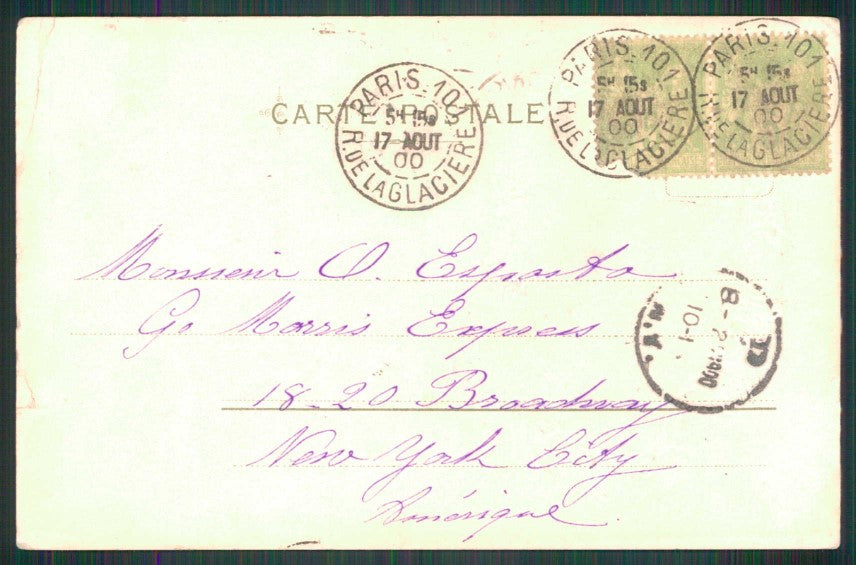 CARTE POSTALE
PARIS_101
5H 15s
17 AOUT
00
R. DE LA GLACIERE
PARIS_101
5H 15s
17 AOUT
00
R. DE LA GLACIERE
PARIS_101
5H 15s
17 AOUT
00
R. DE LA GLACIERE
Monsieur O. Esposta
Go Morris Express
18-20 Broadway
New York City
Amérique
N.Y.
D
10-1
8-2
1900